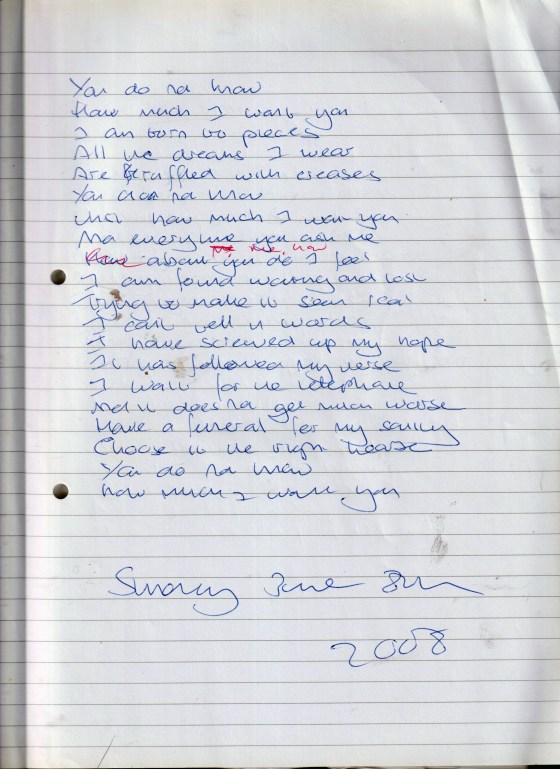 You do not know
How much I want you
I am torn to pieces
All the dreams I wear
Are stuffed with creases
You do not know
Just how much I want you
And everytime you ask me
about you do I feel
I am found wanting and lost
Trying to make it seem real
I can't tell it words
I have screwed up my hope
It has followed my verse
I wait for the telephone
And it does not get much worse
Have a funeral for my sanity
Choose it the right hearse
You do not know
How much I want you
Sunday June 8th
2008